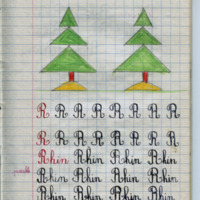 R R R R R R R R
R R R R R R R R
Rhin Rhin Rhin Rhin
Rhin Rhin Rhin Rhin
Rhin Rhin Rhin Rhin